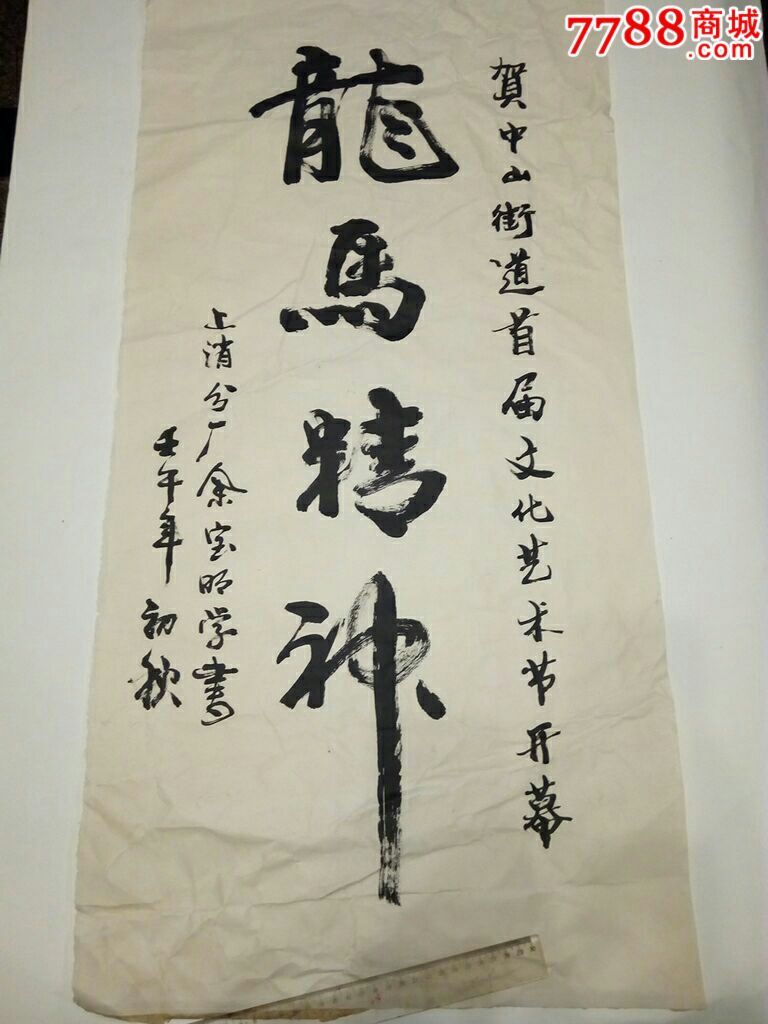 7788商城
.com
賀中山街道首届文化艺术节开幕
龍馬精神
上消分厂余宝明学書
壬午年初秋